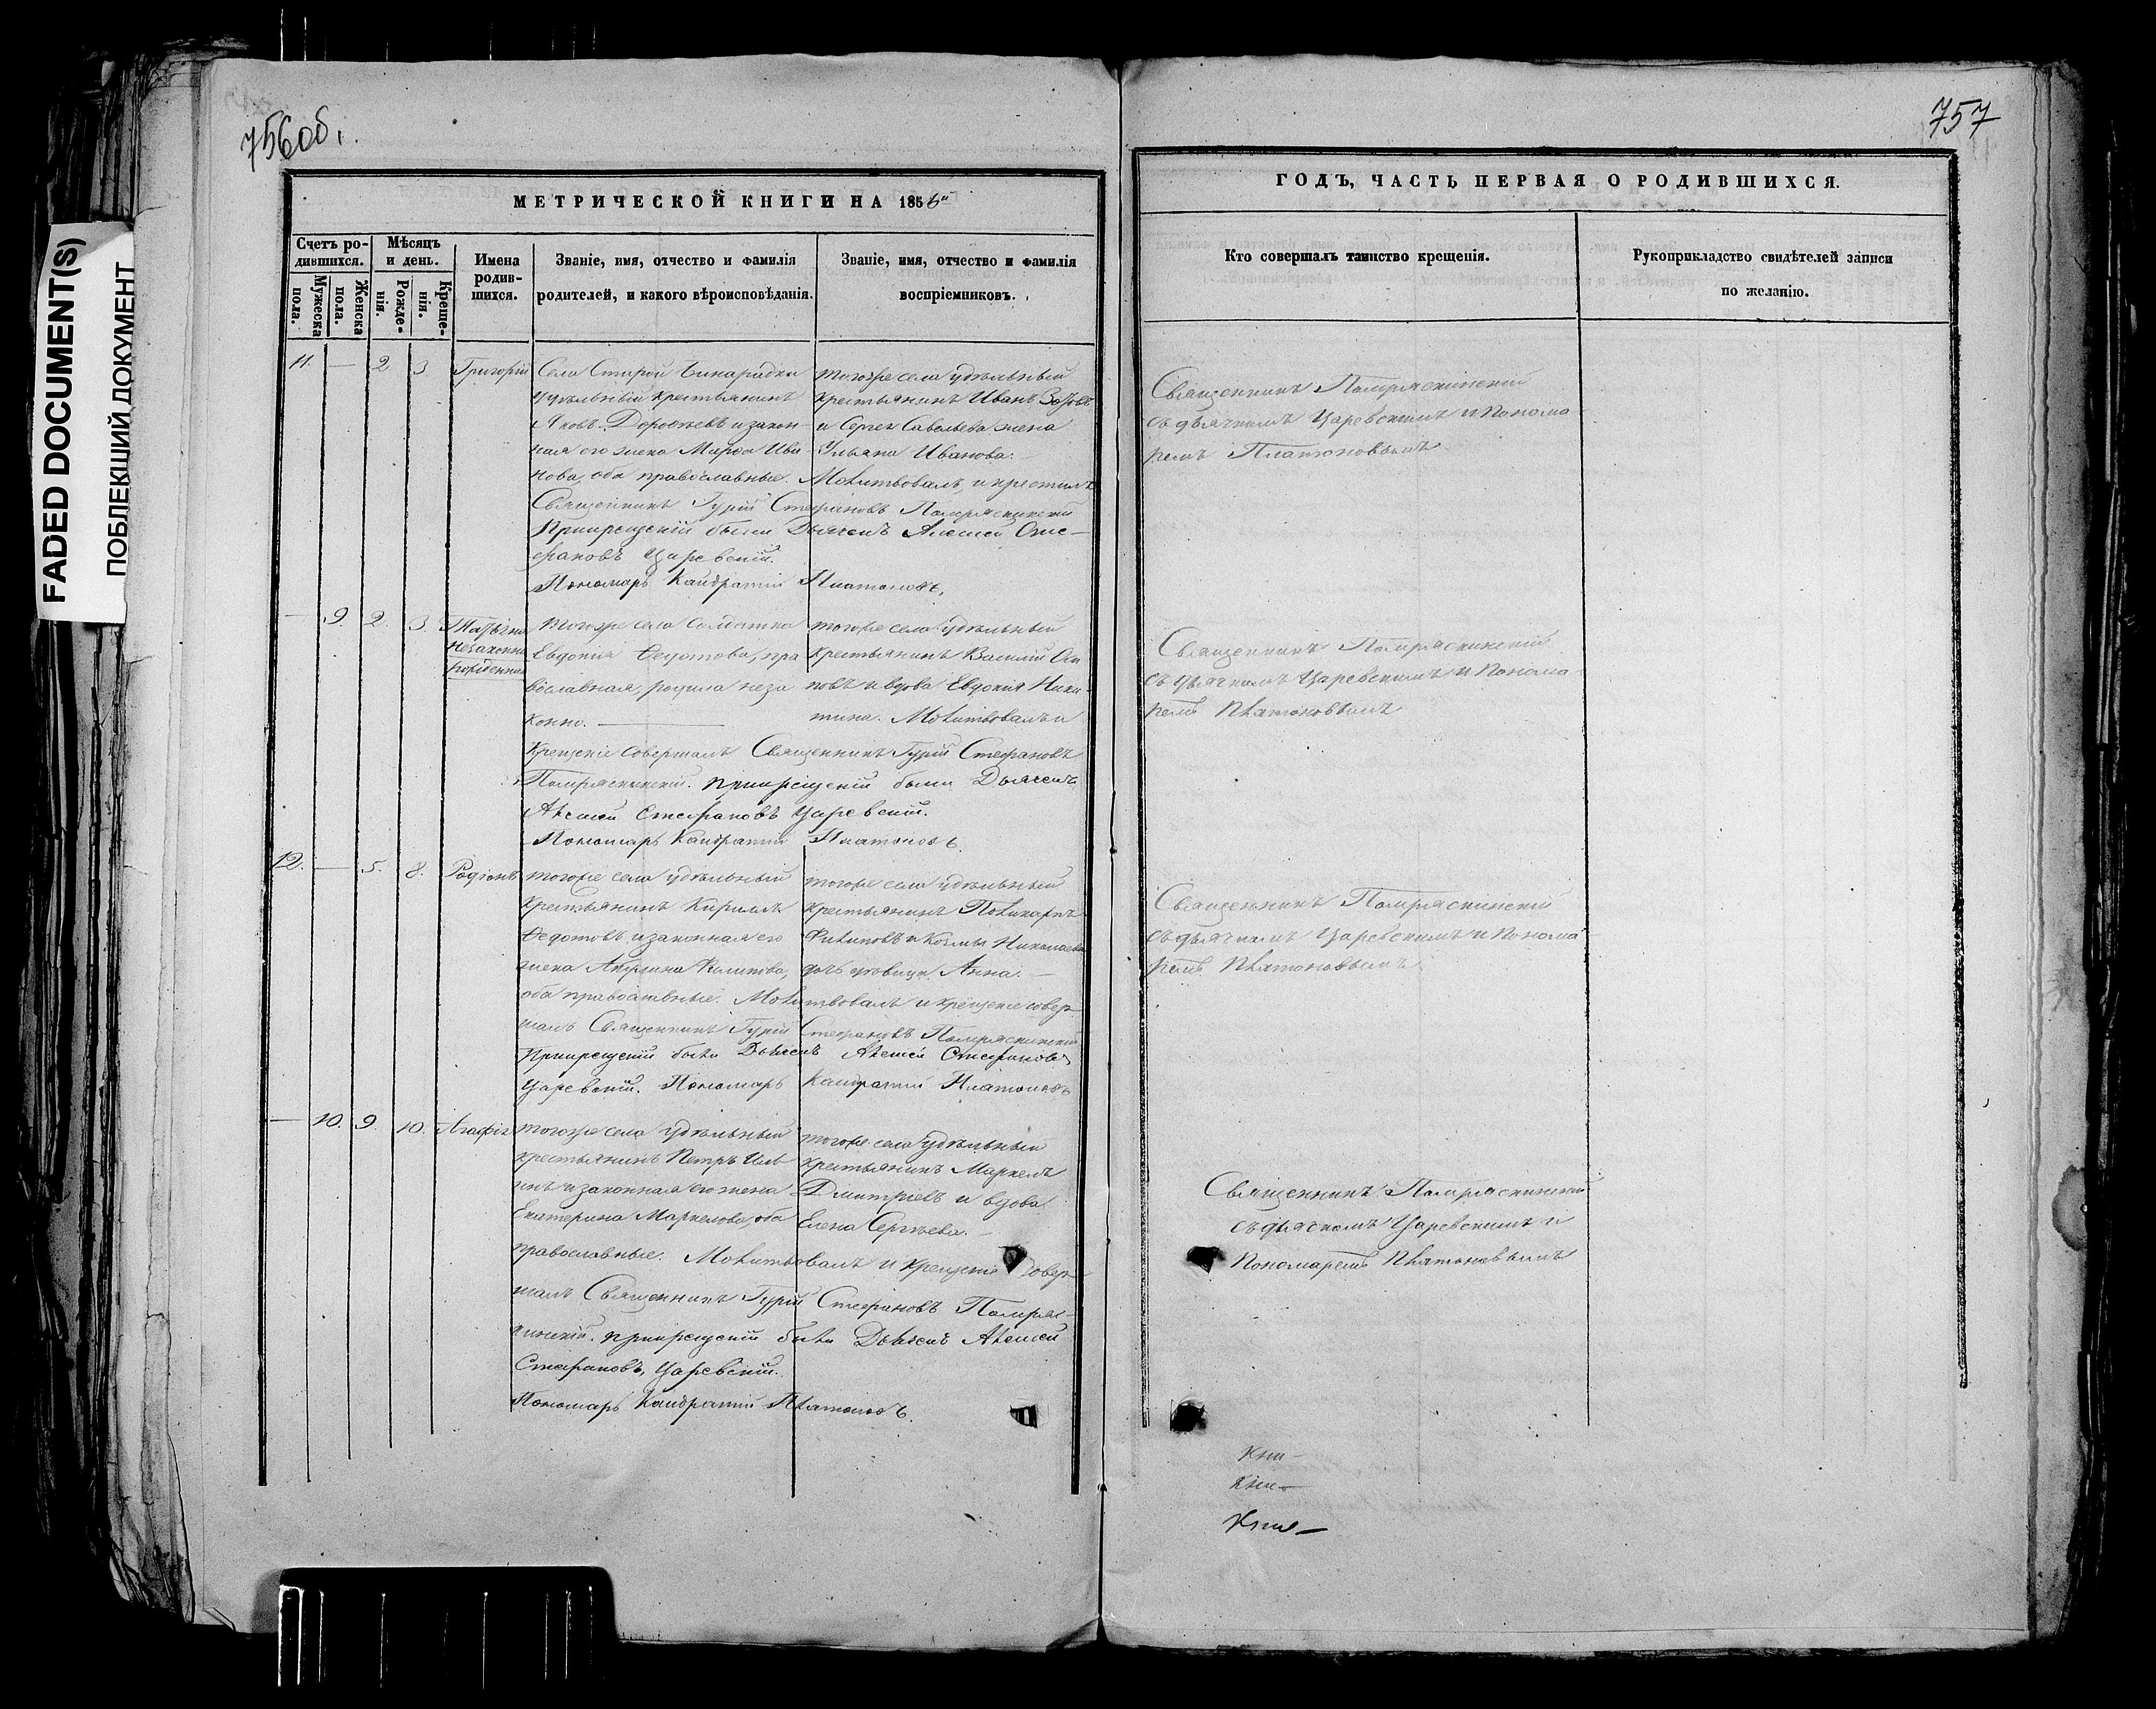 FADED DOCUMENT(S)
ПОБЛЕКШИЙ ДОКУМЕНТ
756об.
МЕТРИЧЕСКОЙ КНИГИ НА 1856
Счетъ родившихся.
Мужеска пола.
Женска пола.
Мѣсяцъ и день.
Рожденія.
Крещенія.
Имена родившихся.
Званіе, имя, отчество и фамилія
родителей, и какого вѣроисповѣданія.
Званіе, имя, отчество и фамилія
воспріемниковъ.
11. — 2. 3. Григорій
Села Старой Бинарадки
удѣльный крестьянинъ
Яковъ Дороѳеевъ и закон-
ная его жена Марѳа Ива-
нова, оба православные.
тогоже села удѣльный
крестьянинъ Иванъ
и Сергея Савельева жена
Ульяна Иванова.
Молитвовалъ, и крестилъ
Священникъ Гурій Стефановъ
Прикрещеніи были Дьячекъ Алексей Сте-
фановъ Царевскій.
Пономарь Кандратій Платоновъ.
— 9. 2. 3. Татьяна
незаконно
рожденная
тогоже села Солдатка
Евдокія Ѳедотова, пра
вославная, родила неза
конно.
тогоже села удѣльный
крестьянинъ Василій Оси
повъ и вдова Евдокія Ники-
тина. Молитвовалъ и
крещеніе совершалъ Священникъ Гурій Стефановъ
прикрещеніи были Дьячекъ
Алексей Стефановъ Царевскій.
Пономарь Кандратій Платоновъ.
12. — 5. 8. Родіонъ
тогоже села удѣльный
крестьянинъ Кирилъ
Ѳедотовъ и законная его
жена
оба православные.
тогоже села удѣльный
крестьянинъ Поликарпъ
Филиповъ и Козмы Николаева
дочь девица Анна. —
Молитвовалъ и крещеніе совер-
шалъ Священникъ Гурій Стефановъ
Прикрещеніи были Дьячекъ Алексей Стефановъ
Царевскій. Пономарь Кандратій Платоновъ
— 10. 9. 10. Агафія
тогоже села удѣльный
крестьянинъ Петръ Иль
инъ и законная его жена
Екатерина Маркелова, оба
православные.
тогоже села удѣльный
крестьянинъ Маркелъ
Дмитріевъ и вдова
Елена Сергѣева. —
Молитвовалъ и крещеніе совер-
шалъ Священникъ Гурій Стефановъ
прикрещеніи были Дьячекъ Алексей
Стефановъ, Царевскій.
Пономарь Кандратій Платоновъ.
757
ГОДЪ, ЧАСТЬ ПЕРВАЯ О РОДИВШИХСЯ.
Кто совершалъ таинство крещенія.
Рукоприкладство свидѣтелей записи
по желанію.
Священникъ
съ дьячкомъ Царевскимъ и Понома-
ремъ Платоновымъ
Священникъ
съ дьячкомъ Царевскимъ и Понома-
ремъ Платоновымъ
Священникъ
съ дьячкомъ Царевскимъ и Понома-
ремъ Платоновымъ
Священникъ
съ дьячкомъ Царевскимъ и
Пономаремъ Платоновымъ